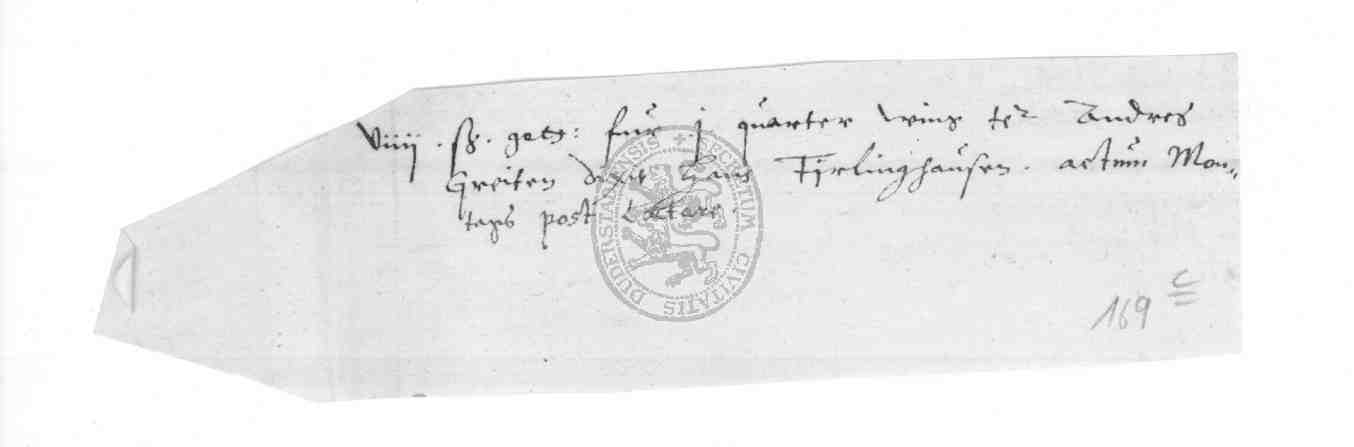 viiij . ß . geth: fur .j quarter wins Andres
Greiten dixit Hans Tirlinghausen . actum Mon„
tags post Letare.
169 C
DUDERSTANENSIS SECRETUM CIVITATIS